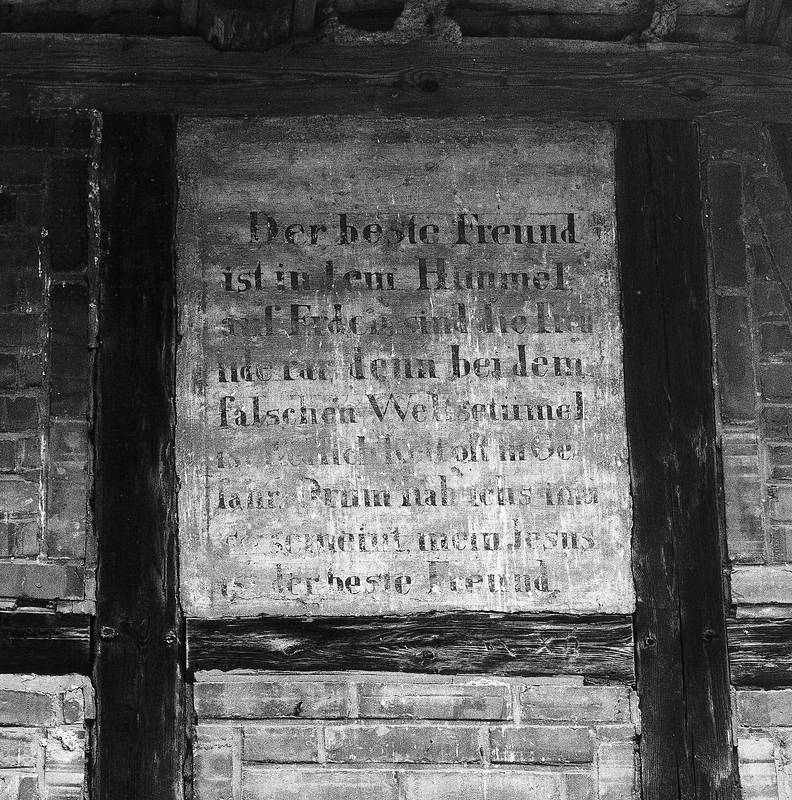 Der beste Freund
ist in dem Himmel
auf Erden sind die Freu
nde rar, denn bei dem
falschen Weltgetümmel
ist Redlichkeit oft in Ge
fahr. Drum hab ichs imm
er gemeint, mein Jesus
ist der beste Freund.